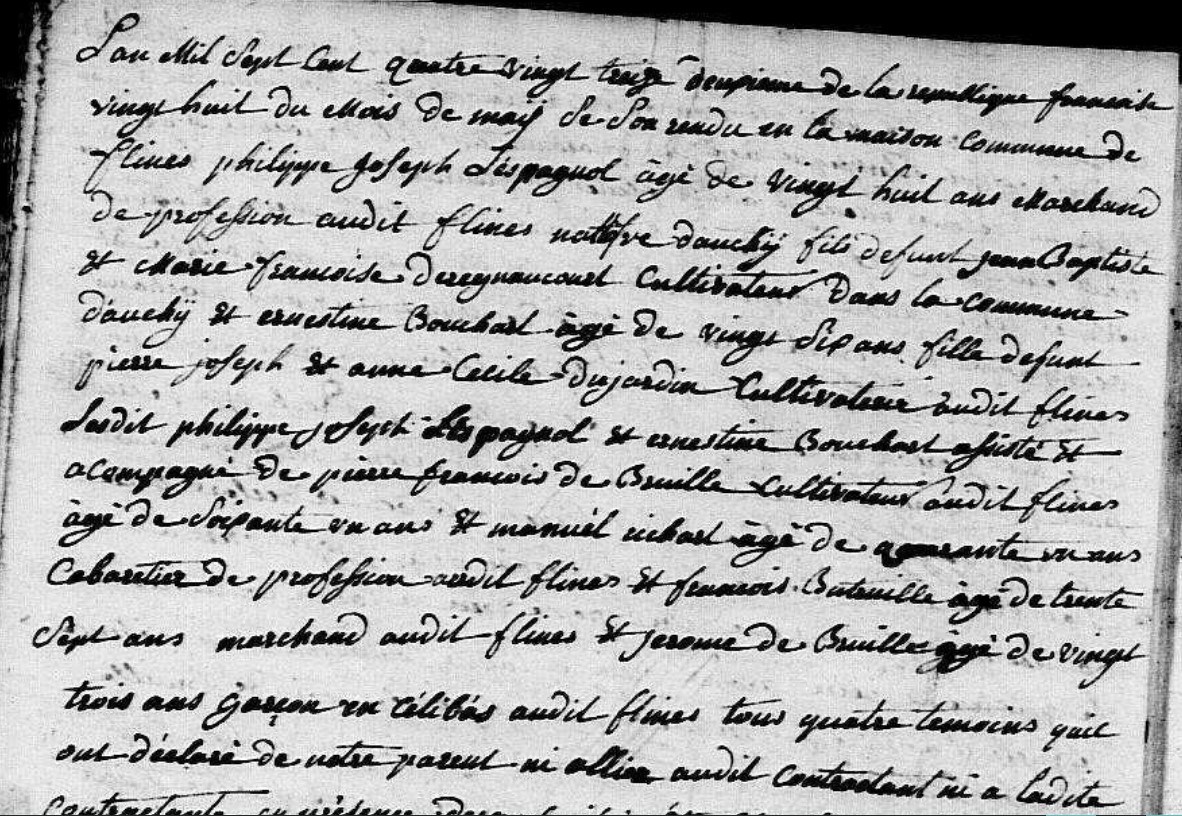 L'an Mil Sept Cent quatre vingt treize deuxieme de la republique francaise
vingt huit du Mois de maÿ Se Son rendu en la maison Commune de
flines philippe Joseph Lespagnol âgé de vingt huit ans Marchand
de profession audit flines natifve dauchÿ fils defunt jean Baptiste
et Marie francoise deregnaucourt Cultivateur dans la Commune
dauchÿ et ernestine Bouchart âgé de vingt Six ans fille defunt
pierre joseph et anne Cecile Dujardin Cultivaterie audit flines
Lesdit philippe joseph Lespagnol et ernestine Bouchart assisté et
acompagné de pierre francois de Bruille Cultivateur audit flines
âgé de Soixante un ans et manuel richart âgé de quarante un ans
Cabaretier de profession audit flines et francois Buteuille âgé de trente
Sept ans marchand audit flines et jerome de Bruille âgé de vingt
trois ans garçon en Célibás audit flines tous quatre temoins quil
ont déclaré de notre parent ni allier audit Contractant ni a ladite
Contractante en présence